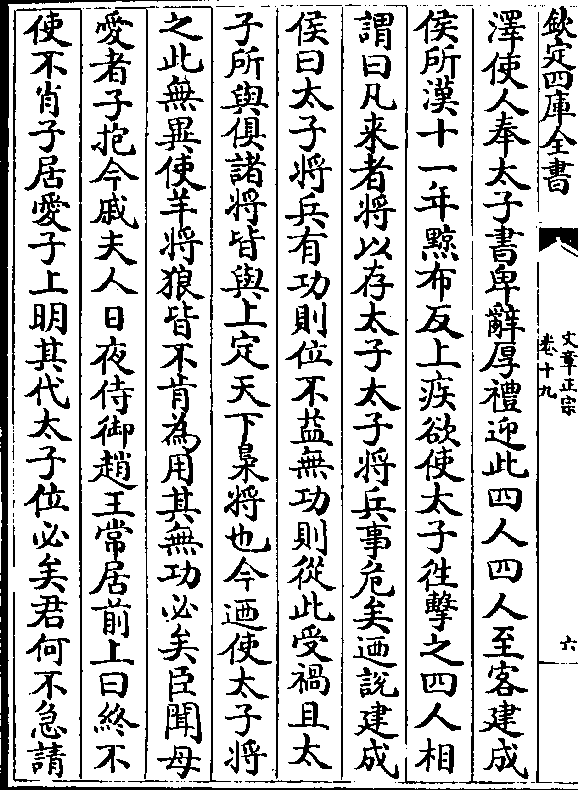 欽定四庫全書
文章正宗
卷十九
六
澤使人奉太子書卑辭厚禮迎此四人四人至客建成
侯所漢十一年黥布反上疾欲使太子徃擊之四人相
謂曰凡来者將以存太子太子將兵事危矣迺說建成
侯曰太子將兵有功則位不益無功則從此受禍且太
子所與俱諸將皆與上定天下梟將也今迺使太子將
之此無異使羊將狼皆不肯為用其無功必矣臣聞母
愛者子抱今戚夫人日夜侍御趙王常居前上曰終不
使不肖子居愛子上明其代太子位必矣君何不急請